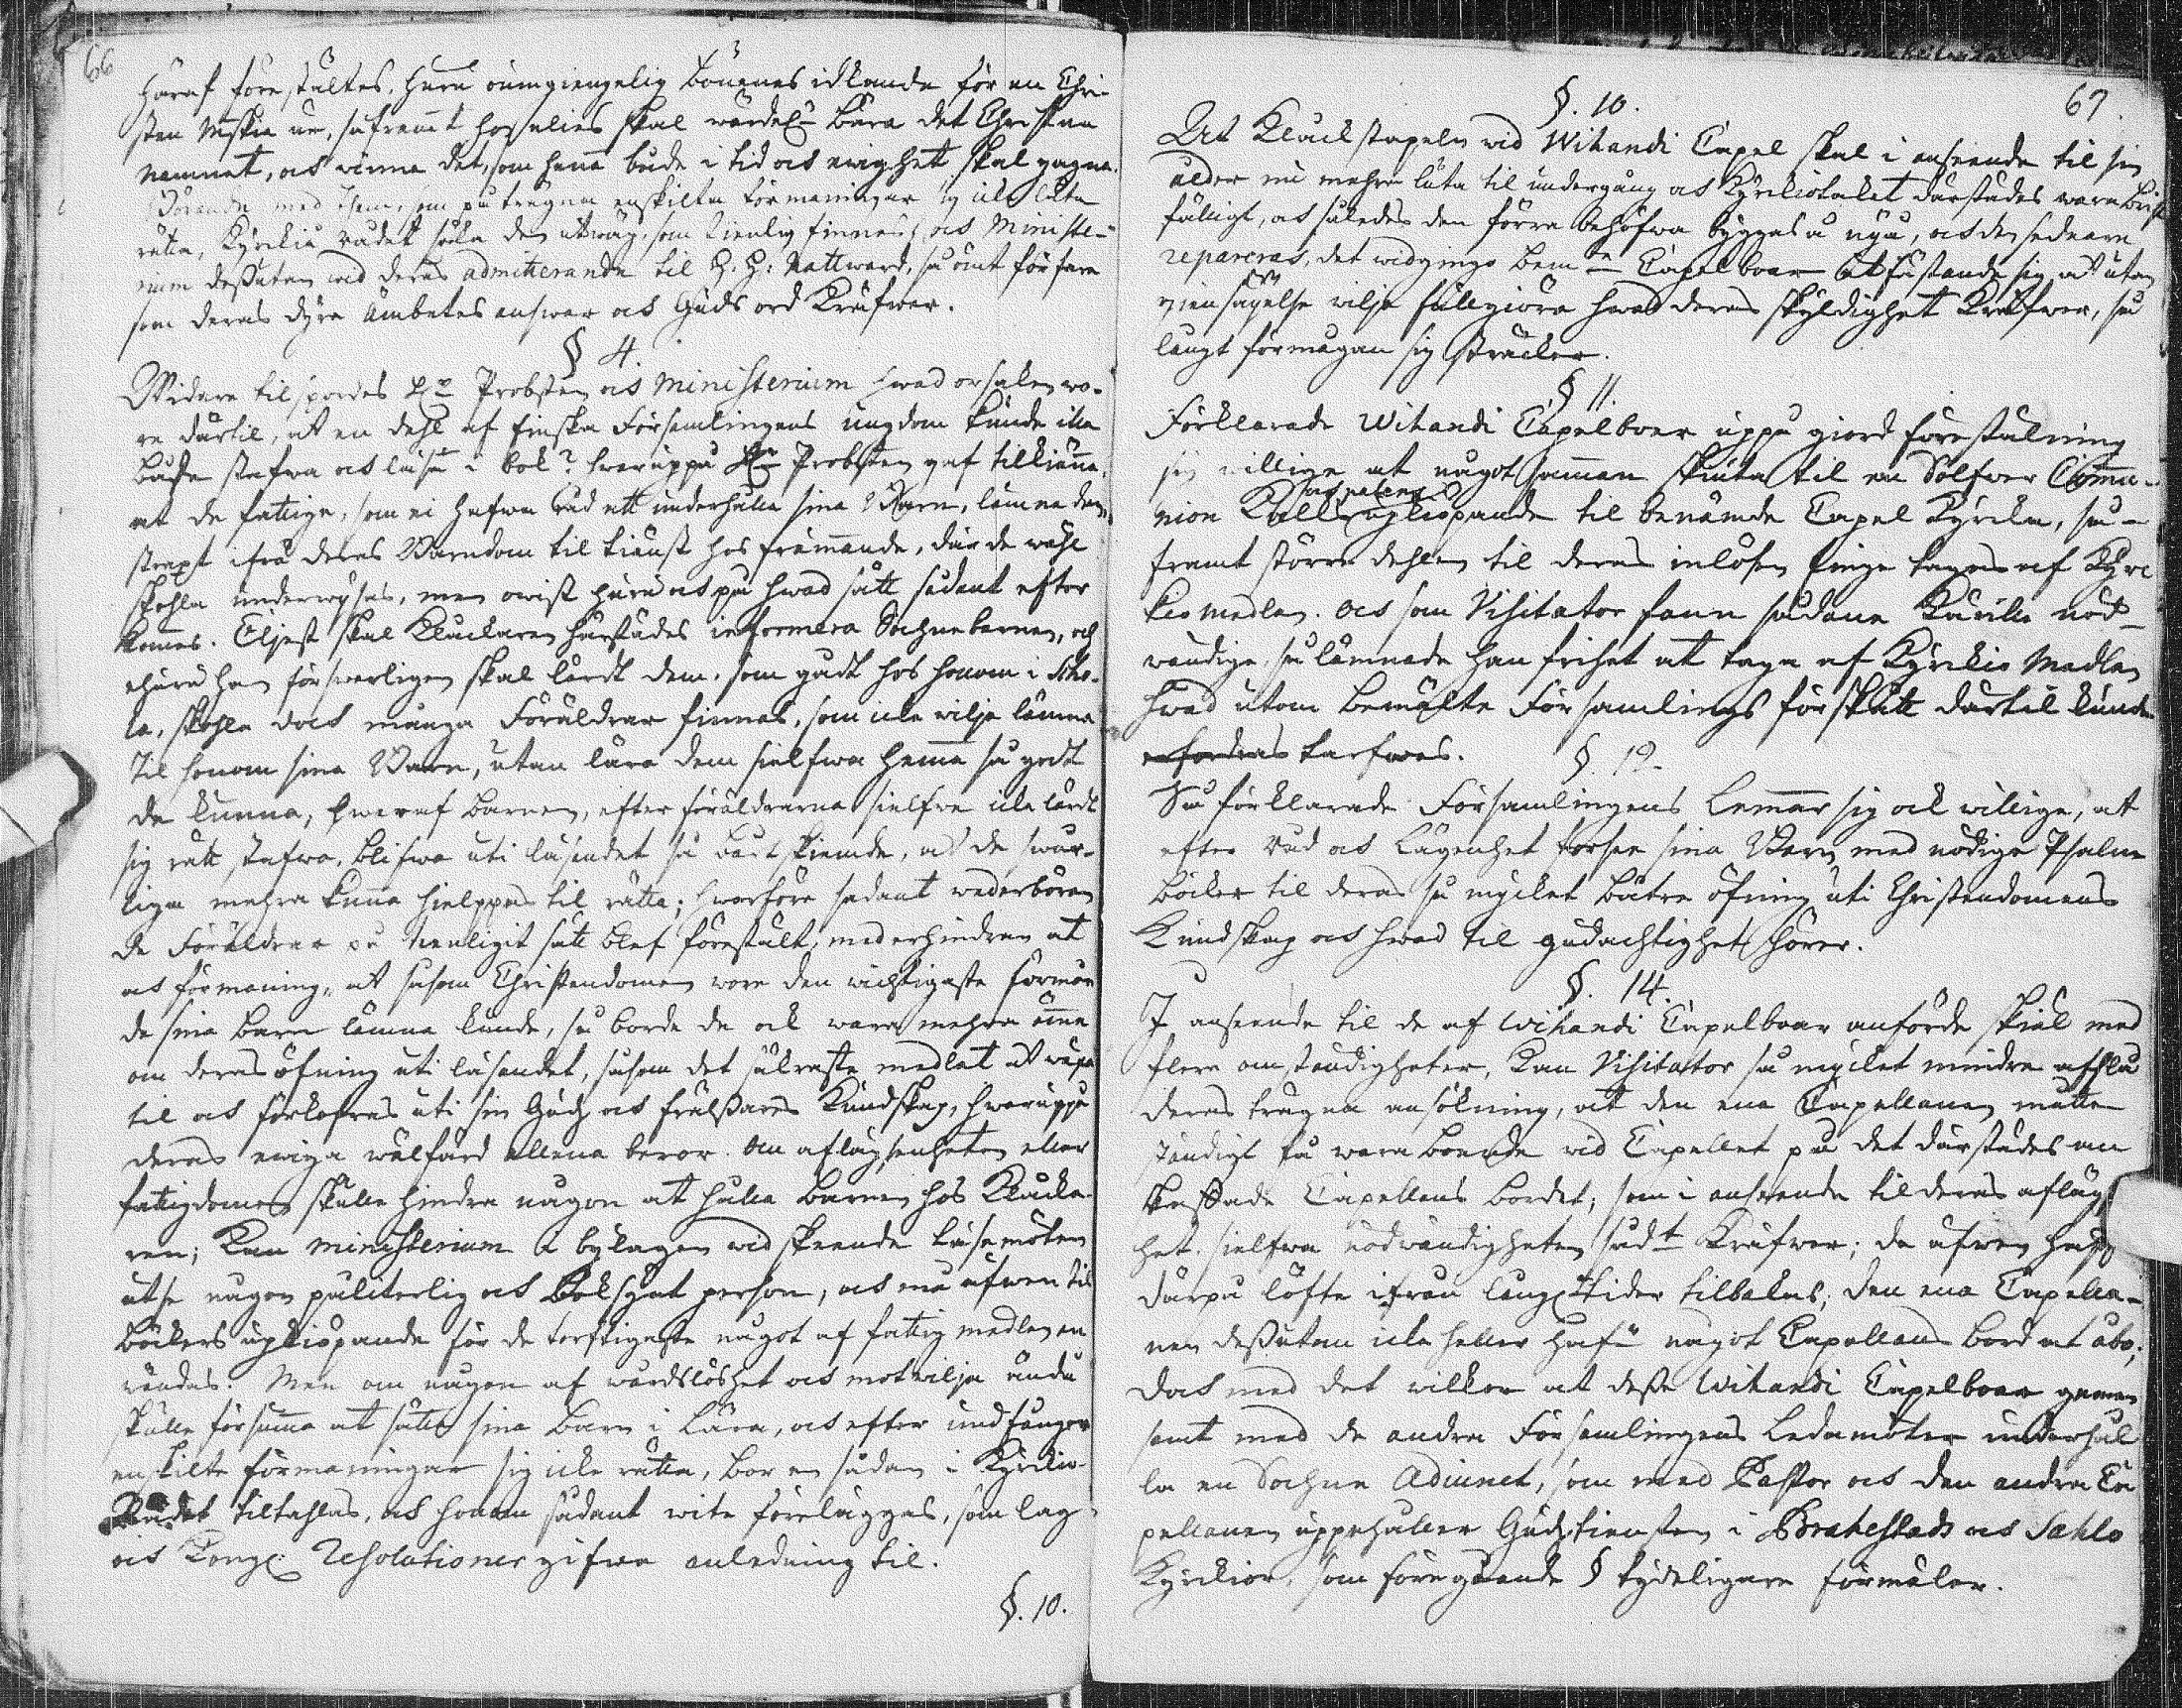 66
häraf förestältes, huru oumgiengelig bönenes idkande för en Chri-
sten Mskia är, såframt hon elies skal wärdel:n bära det Christna
namnet, och winna det, som henne både i tid och ewighet skal gagna.
Wörande med them, som på trägna enskilta förmaningar sig icke låta
rätta, Kyrckio rådet söka den utwäg, som tienlig finnes, och Ministe-
rium dessutan wid deras admitterande til H. H: Nattward, så ömt förfara
som deras dyra Ämbetes answar och Guds ord kräfwer.
§ 4.
Widare tilspordes H:r Probsten och Ministerium hwad orsaken wo-
re därtil, at en dehl af finska Församlingens ungdom kunde illa
både stafwa och läsa i bok? hwaruppå H:r Probsten gaf tilkiänna,
at de fattige, som ei hafwa råd att underhålla sina Barn, lämna dem
strapt ifrå deras Barndom til tienst hos främmande, där de wähl
skohla underwijsas, men owist huru och på hwad sätt sådant efter
kommes. Eljest skal Kluckaren härstädes informera Sochnebarnen, och
ehuru han förswarligen skal lärdt dem, som gådt hos honom i Scho-
la, skohla doch många Föräldrar finnas, som icke wilja lämna
til honom sina Barn, utan lära dem sielfwa hemma så godt
de kunna, hwaraf barnen, efter föräldrarna sielfwe icke lärdt
sig rätt stafwa, blifwa uti läsandet så bortskiemde, at de swår-
ligen mehra kunna hielppas til rätta; hwarföre sådant wederböran
de Föräldrar på tienligit sätt blef förestält, med erhindran at
och förmaning, at såsom Christendomen wore den wichtigaste förmån
de sina barn lämna kunde, så borde de ock wara mehra ömma
om deras öfning uti läsandet, såsom det säkraste medlet at wäxa
til och förkofras uti sin Guds och frälsares Kundskap, hwaruppå
deras ewiga wälfärd allena beror. Om aflägsenheten eller
fattigdomen skulle hindra någon at hålla barnen hos Klucka-
ren; kan Ministerium i bylagen wid skeende läsemöten
utse någon pålitelig och Boksynt person, och må äfwen til
böckers upkiöpande för de torftigaste något af fattig medlen an
wändas. Men om någon af wårdslöshet och motwilja ändå
skulle försumma at sätta sina barn i lära, och efter undfångna
enskilte förmaningar sig icke rätta, bör en sådan i Kyrckio-
Rådet tiltahlas, och honom sådant wite föreläggas, som lag
och Kongl: Resolutioner gifwa anledning til.
§. 10.
67.
§. 10.
At Kluckstapeln wid Wihandi Capel skal i anseende til sin
ålder nu mehra luta til undergång och Kyrkiotaket därstädes wara brist
fälligt, och således den förra behöfwa byggas å nyo, och den sednare
repareras, det widgingo bem:te Capelboar utfästande sig at utan
giensäyelse wilja fullgiöra hwad deras skyldighet kräfwer, så
långt förmågan sig sträcker.
§ 11.
Förklarade Wihandi Capelboar uppå giord föreställning
sig willige at något samman skiuta til en Solfwer Commu-
nion Kalk och patens upkiöpande til benämde Capel Kyrcka, så-
framt större dehlen til deras inlösen finge tagas af Kyrc
kio medlen. och som Visitator fann sådane Kärille nöd-
wändige, så lämnade han frihet at taga af Kyrckio Medlen
hwad utom bemälte Församlings förskått därtil kunde
erfordras tarfwas.
§. 12.
Så förklarade Församlingens Lemmar sig ock willige, at
efter råd och Lägenhet förse sina Barn med nödige Psalm
böcker til deras så mycket bättre öfning uti Christendomens
Kundskap och hwad til gudachtighet hörer.
§. 14.
I anseende til de af Wihandi Capelboar anförde skiäl med
flere omständigheter, kan Visitator så mycket mindre afslå
deras trägna ansökning, at den ena Capellanen måtte
ständigt få wara boende wid Capellet på det därstädes an
skaffade Capellans bordet; som i anseende til deras afläg
het, sielfwa nödwändigheten såd:t kräfwer; de äfwen haft
därpå löfte ifrån långl: tider tilbakas; den ena Capella-
nen dessutan icke heller haf:r något Capellans bord at åbo;
doch med det wilkor at desse Wihandi Capelboar gemen
samt med de andra Församlingens Ledamöter underhål
la en Sochne Adiunct, som med Pastor och den andra Ca
pellanen uppehåller Gudstiensten i Brahestads och Sahlo
Kyrckior, som föregående § tydeligare förmäler.